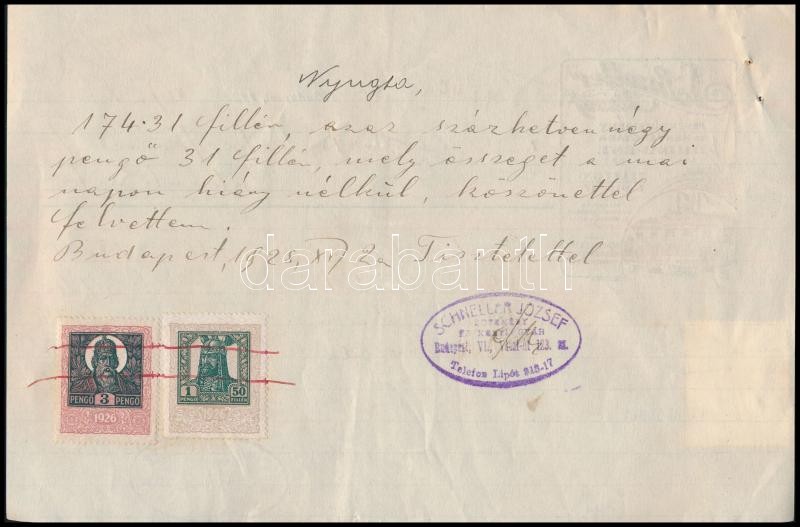 Nyugta,
174.31 fillér, azaz százhetvennégy
pengő 31 fillér, mely összeget a mai
napon hiány nélkül, köszönettel
felvettem.
Budapest, 1928, XI/2n Tisztelettel
darabanth
SCHNELLER JÓZSEF
GYÁR
Budapest, VI., Váczi-út
Telefon Lipót 915-17
PENGŐ 3 PENGŐ
1926
1 50
PENGŐ FILLÉR